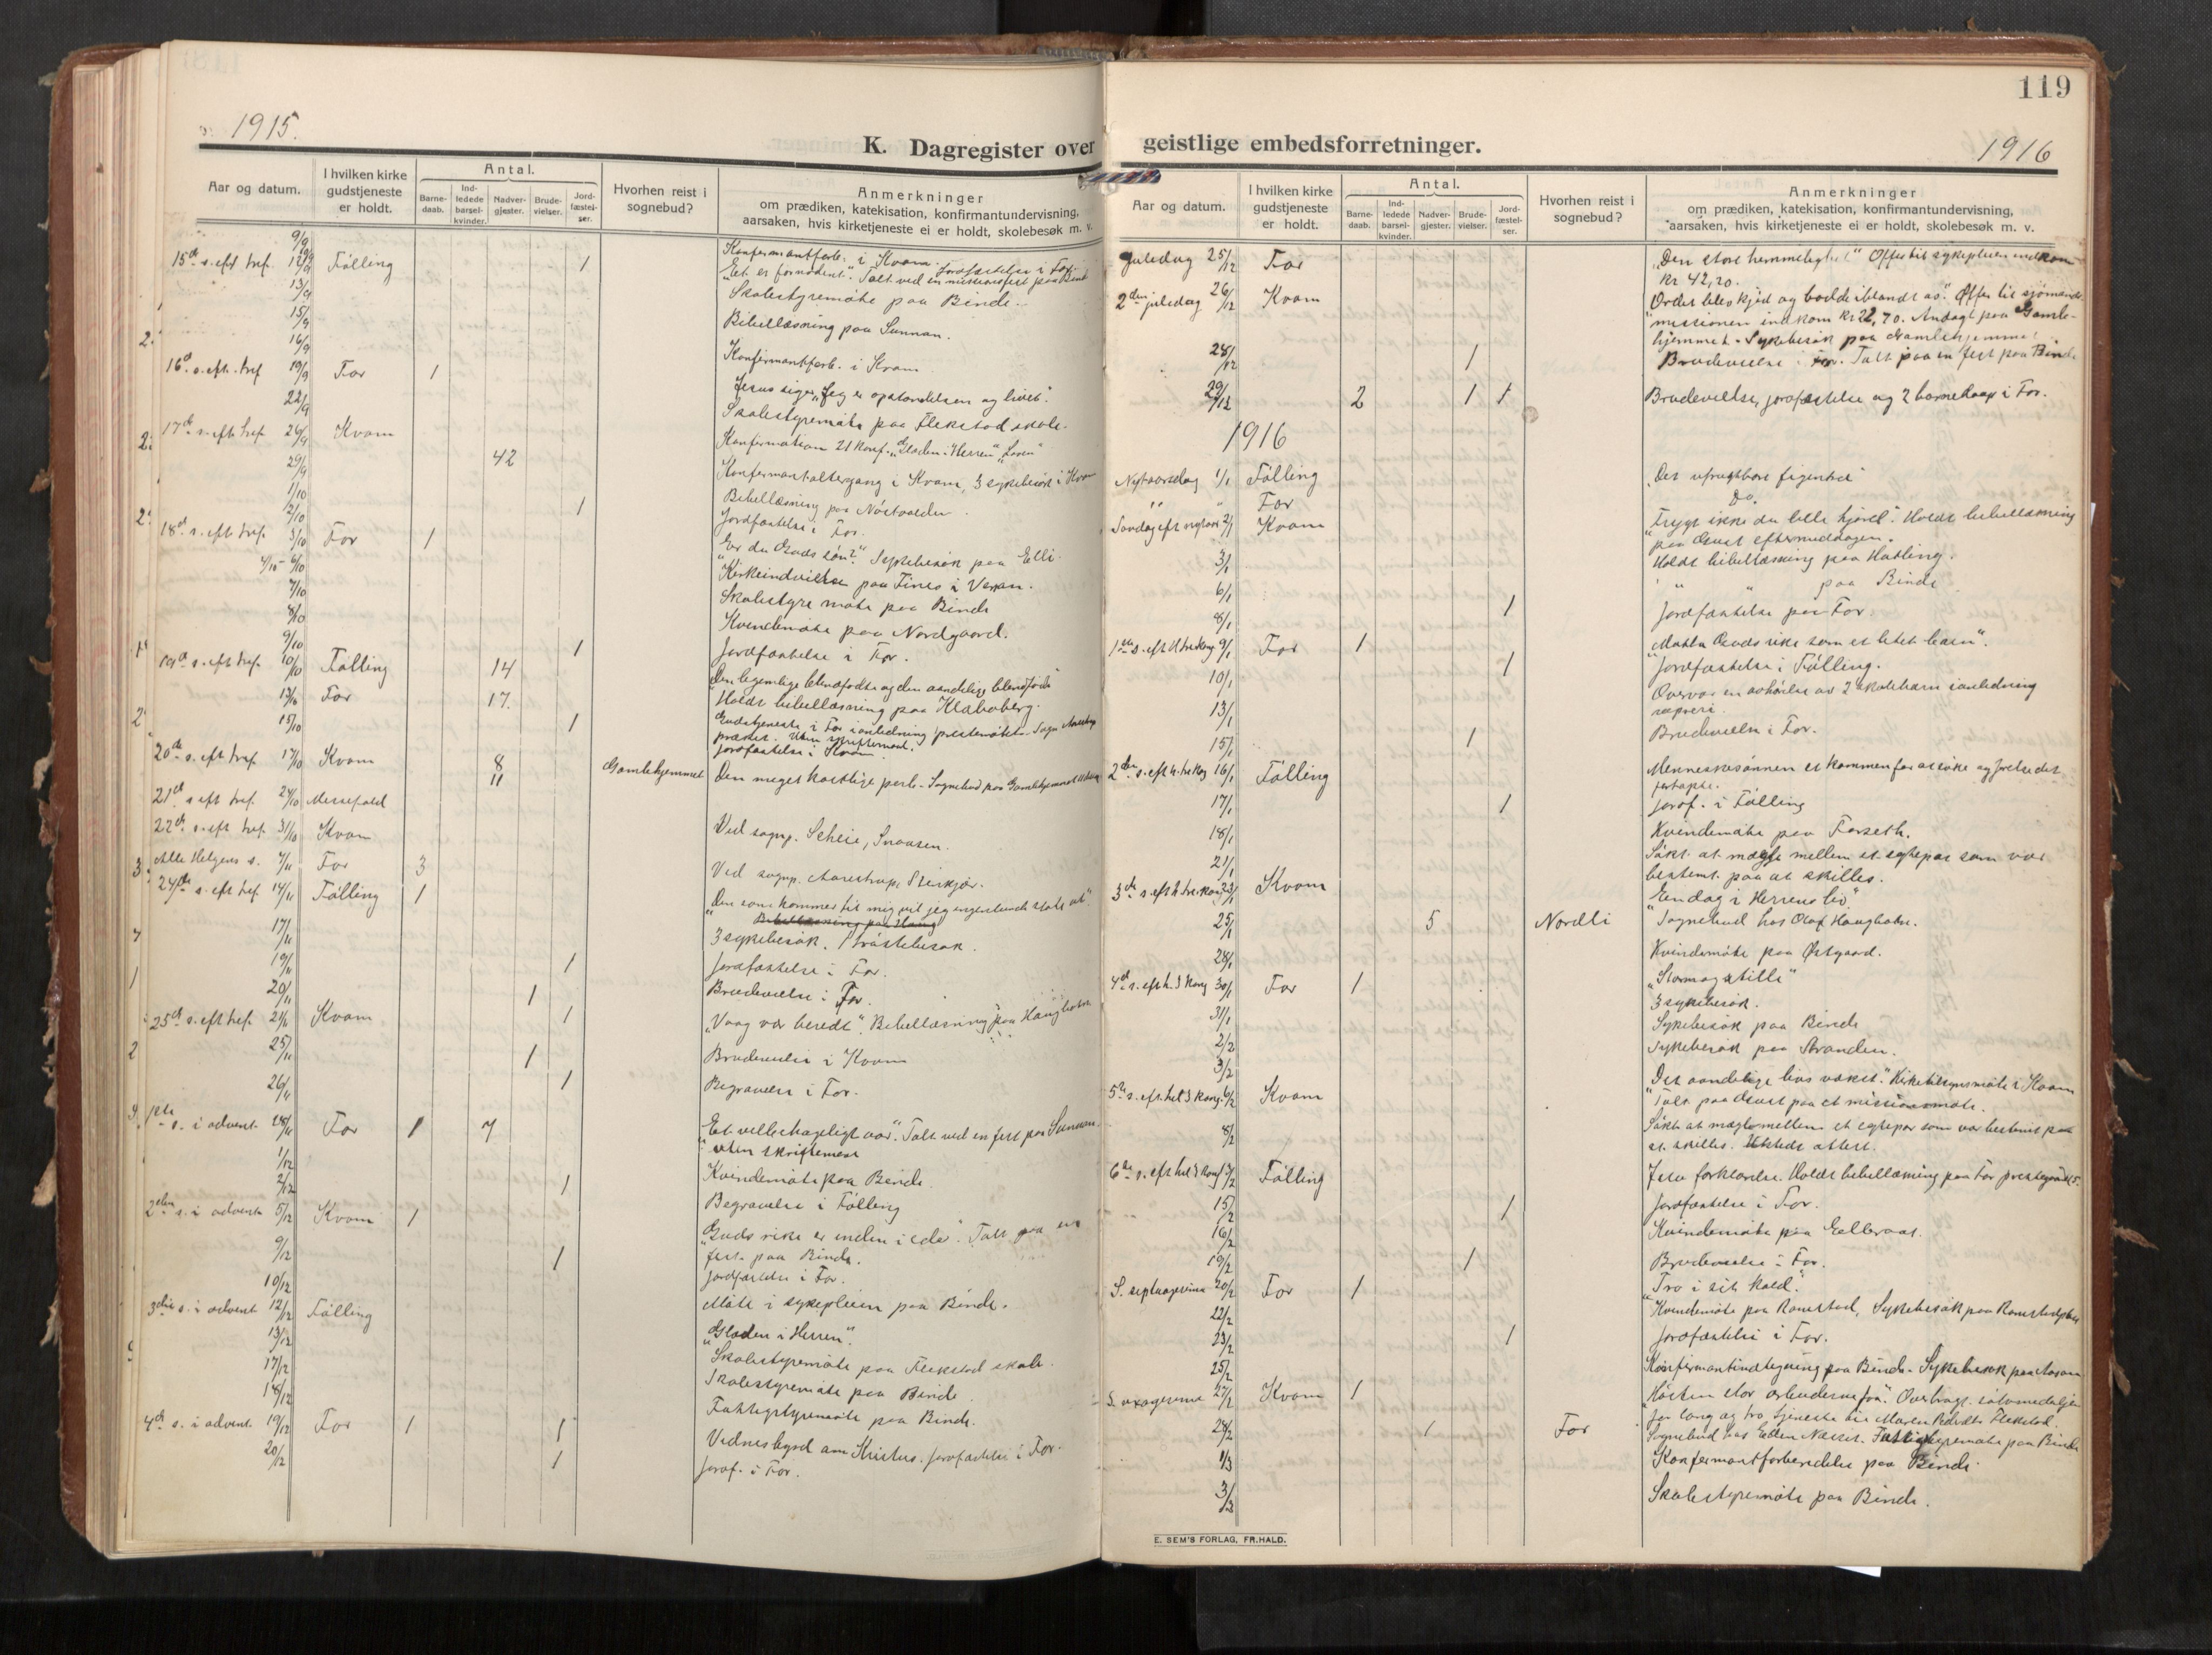 1915.
K. Dagregister over
Aar og datum.
I hvilken kirke
gudstjeneste
er holdt.
Antal.
Barne-
daab.
Ind-
ledede
barsel-
kvinder.
Nadver-
gjester.
Brude-
vielser.
Jord-
fæstel-
ser.
Hvorhen reist i
sognebud?
Anmerkninger
om prædiken, katekisation, konfirmantundervisning,
aarsaken, hvis kirketjeneste ei er holdt, skolebesøk m. v.
9/9 Konfirmantforb. i Kvam.
15de s. eft. tref. 12/9 Følling 1 "Et er fornødent". Talt ved en missionsfest paa Binde
13/9 Skolestyremøte paa Binde.
15/9 Bibellæsning paa Sunnan.
16/9 Konfirmantforb. i Kvam
16d. s. eft. tref. 19/9 For 1 Jesus siger "Jeg er opstandelsen og livet".
22/9 Skolestyremøte paa Flekstad skole.
17de s. eft. tref. 26/9 Kvam Konfirmation 21 konf. "Glæden i Herren"
29/9 42 Konfirmantaltergang i Kvam, 3 sykebesøk i Kvam
1/10 Bibellæsning paa
2/10 1 Jordfæstelse i For.
18d. s. eft. tref. 3/10 For 1 "Er du Guds søn?" Sykebesøk paa Elli
4/10 - 6/10 Kirkeindvielse paa Fines i Verran.
7/10 Skolestyremøte paa Binde
8/10 Kvindemøte paa Nordgaard.
9/10 1 Jordfæstelse i For.
19d. s. eft. tref. 10/10 Følling 14 "Den legemlige blindfødte og den aandelige blindfødte"
13/10 For 17. Holdt bibellæsning paa Klæboberg.
Gudstjeneste i For i anledning prestemøtet. Sogn. Aarestrup
præket. Uten skriftemaal.
15/10 1 Jordfæstelse i Kvam.
20de s. eft. tref. 17/10 Kvam 8 11 Gamlehjemmet Den meget kostelige perle. Sognebud paa Gamlehjemmet
21d. s. eft. tref. 24/10 Messefald
22de s. eft. tref. 31/10 Kvam Ved sognp. Scheie, Snaasen.
Alle Helgens s. 7/11 For 3 Ved sognp. Aarestrup, Steinkjær.
24de s. eft. tref. 14/11 Følling 1 "Den som kommer til mig vil jeg ingenlunde støte ut".
Bibellæsning paa Haug
17/11 3 sykebesøk, 1 trøstebesøk.
19/11 1 Jordfæstelse i For.
20/11 1 Brudevielse i For.
25d. s. eft. tref. 21/11 Kvam 1 "Vaag vær beredt". Bibellæsning paa
25/11 1 Brudevielse i Kvam
26/11 1 Begravelse i For.
1ste s. i advent 28/11 For 1 7 "Et velbehageligt aar". Talt ved en fest paa Sunnan.
uten skriftemaal
1/12 Kvindemøte paa Binde.
2/12 1 Begravelse i Følling
2den s. i advent 5/12 Kvam 1 "Guds rike er inden i eder". Talt paa en
fest paa Binde.
9/12 1 Jordfæstelse i For.
10/12 Møte i sykepleien paa Binde.
3die s. i advent 12/12 Følling "Glæden i Herren".
13/12 Skolestyremøte paa Flekstad skole.
17/12 Skolestyremøte paa Binde
18/12 Fattigstyremøte paa Binde.
4de s. i advent 19/12 For 1 1 Vidnesbyrd om Kristus. Jordfæstelse i For.
20/12 1 Jordf. i For.
119
geistlige embedsforretninger.
1916
Aar og datum.
I hvilken kirke
gudstjeneste
er holdt.
Antal.
Barne-
daab.
Ind-
ledede
barsel-
kvinder.
Nadver-
gjester.
Brude-
vielser.
Jord-
fæstel-
ser.
Hvorhen reist i
sognebud?
Anmerkninger
om prædiken, katekisation, konfirmantundervisning,
aarsaken, hvis kirketjeneste ei er holdt, skolebesøk m. v.
Juledag 25/12 For "Den store hemmelighet" Offer til sykepleien indkom
kr 42,20.
2den juledag 26/12 Kvam "Ordet blev kjød og bodde iblandt os". Offer til sjømands-
missionen indkom kr 22,70. Andagt paa Gamle-
hjemmet. Sykebesøk paa Gamlehjemmet
28/12 1 Brudevielse i For. Talt paa en fest paa Binde
29/12 2 1 1 Brudevielse, jordfæstelse og 2 barnedaap i For.
1916
Nytaarsdag 1/1 Følling "Det ufrugtbare figentræ"
" " For Do.
Søndag eft nytaar 2/1 Kvam "Frygt ikke du lille hjord". Holdt bibellæsning
paa eftermiddagen.
3/1 Holdt bibellæsning paa Hatling.
6/1 " " paa Binde
8/1 1 Jordfæstelse paa For.
1ste s. eft H. tre Kong. 9/1 For 1 "Motta Guds rike som et litet barn".
10/1 1 Jordfæstelse i Følling.
13/1 Overvar en avhørelse av 2 skolebarn i anledning
15/1 1 Brudevielse i For.
2den s. eft h. tre Kong 16/1 Følling Menneskesønnen er kommen for at søke og frelse det
fortapte.
17/1 1 Jordf. i Følling
18/1 Kvindemøte paa Forseth.
21/1 Søkt at mægle mellem et egtepar som var
bestemt paa at skilles.
3de s. eft h. tre kong. 23/1 Kvam "En dag i Herrens liv"
25/1 5 Nordli Sognebud hos Olaf
28/1 Kvindemøte paa Østgaard.
4d. s. eft h. 3 kong 30/1 For 1 "Storm og stille"
31/1 3 sykebesøk.
2/2 Sykebesøk paa Binde
3/2 Sykebesøk paa Stranden.
5te s. eft. hel 3 kong. 6/2 Kvam "Det aandelige livs vekst". Kirketilsynsmøte i Kvam
Talt paa et missionsmøte.
8/2 Søkt at mægle mellem et egtepar som var bestemt paa
at skilles. Utstedt attest.
6te s. eft hel 3 kong 13/2 Følling Jesu forklarelse. Holdt bibellæsning paa For prestegaard
15/2 1 Jordfæstelse i For.
16/2 Kvindemøte paa
19/2 1 Brudevielse i For.
S. septuagesima 20/2 For 1 "Tro i sit kald".
22/2 Kvindemøte paa Ramstad, Sykebesøk paa
23/2 1 Jordfæstelse i For.
25/2 Konfirmantindtegning paa Binde. Sykebesøk paa
S. sexagesima 27/2 Kvam 1 "Høsten stor arbeiderne faa". Overbragt sølvmedaljen
for lang og tro tjeneste til Maren Flekstad.
28/2 1 For Sognebud hos Fattigstyremøte paa Binde
1/3 Konfirmantforberedelse paa Binde
3/3 Skolestyremøte paa Binde.
E. SEM'S FORLAG, FR.HALD.